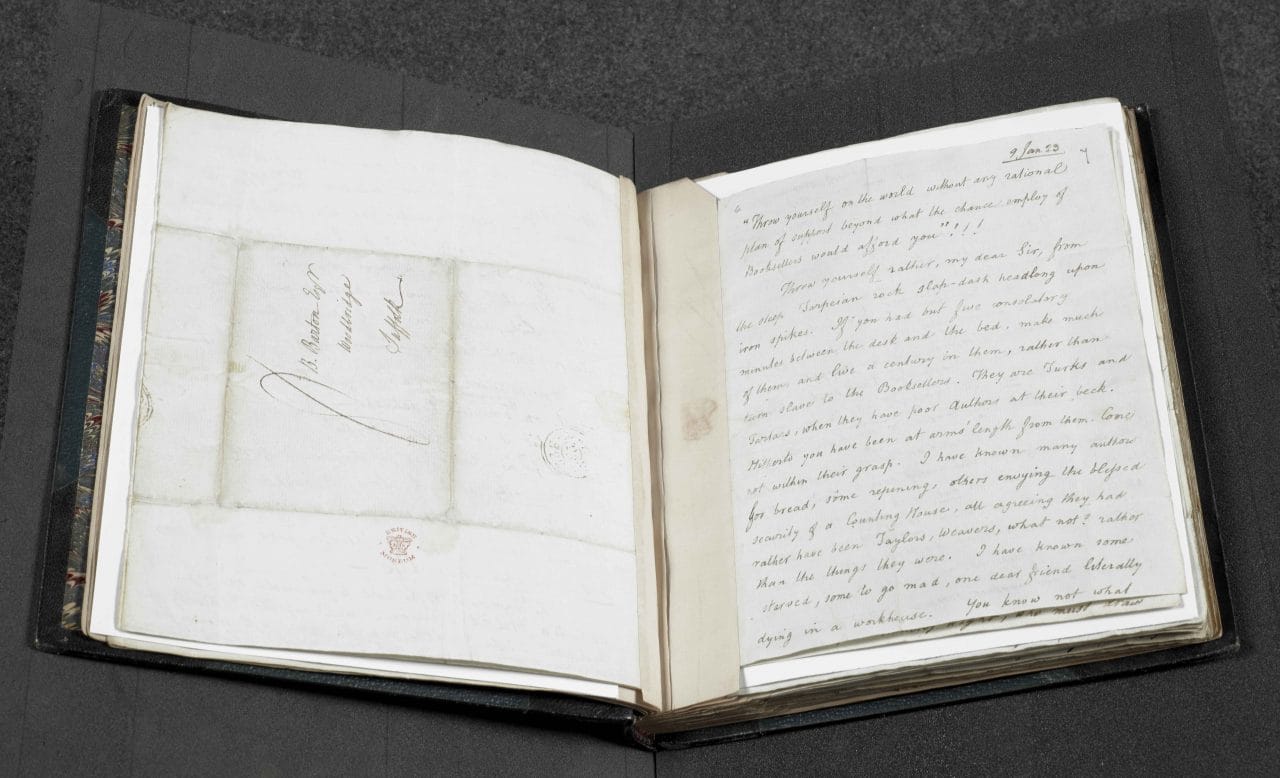 B. Barton Esqr
Woodbridge
Suffolk
BRITISH
MUSEUM
9 Jan 23
"Throw yourself on the world without any rational
plan of support beyond what the chance employ of
Booksellers would afford you"!!!
Throw yourself rather, my dear Sir, from
the steep Tarpeian rock slap-dash headlong upon
iron spikes. If you had but five consolatory
minutes between the desk and the bed, make much
of them, and live a century in them, rather than
turn slave to the Booksellers. They are Turks and
Tartars, when they have poor Authors at their beck.
Hitherto you have been at arms' length from them. Come
not within their grasp. I have known many authors
for bread, some repining, others envying the blessed
security of a Counting House, all agreeing they had
rather have been Taylors, Weavers, what not? rather
than the things they were. I have known some
starved, some to go mad, one dear friend literally
dying in a workhouse. You know not what
must draw